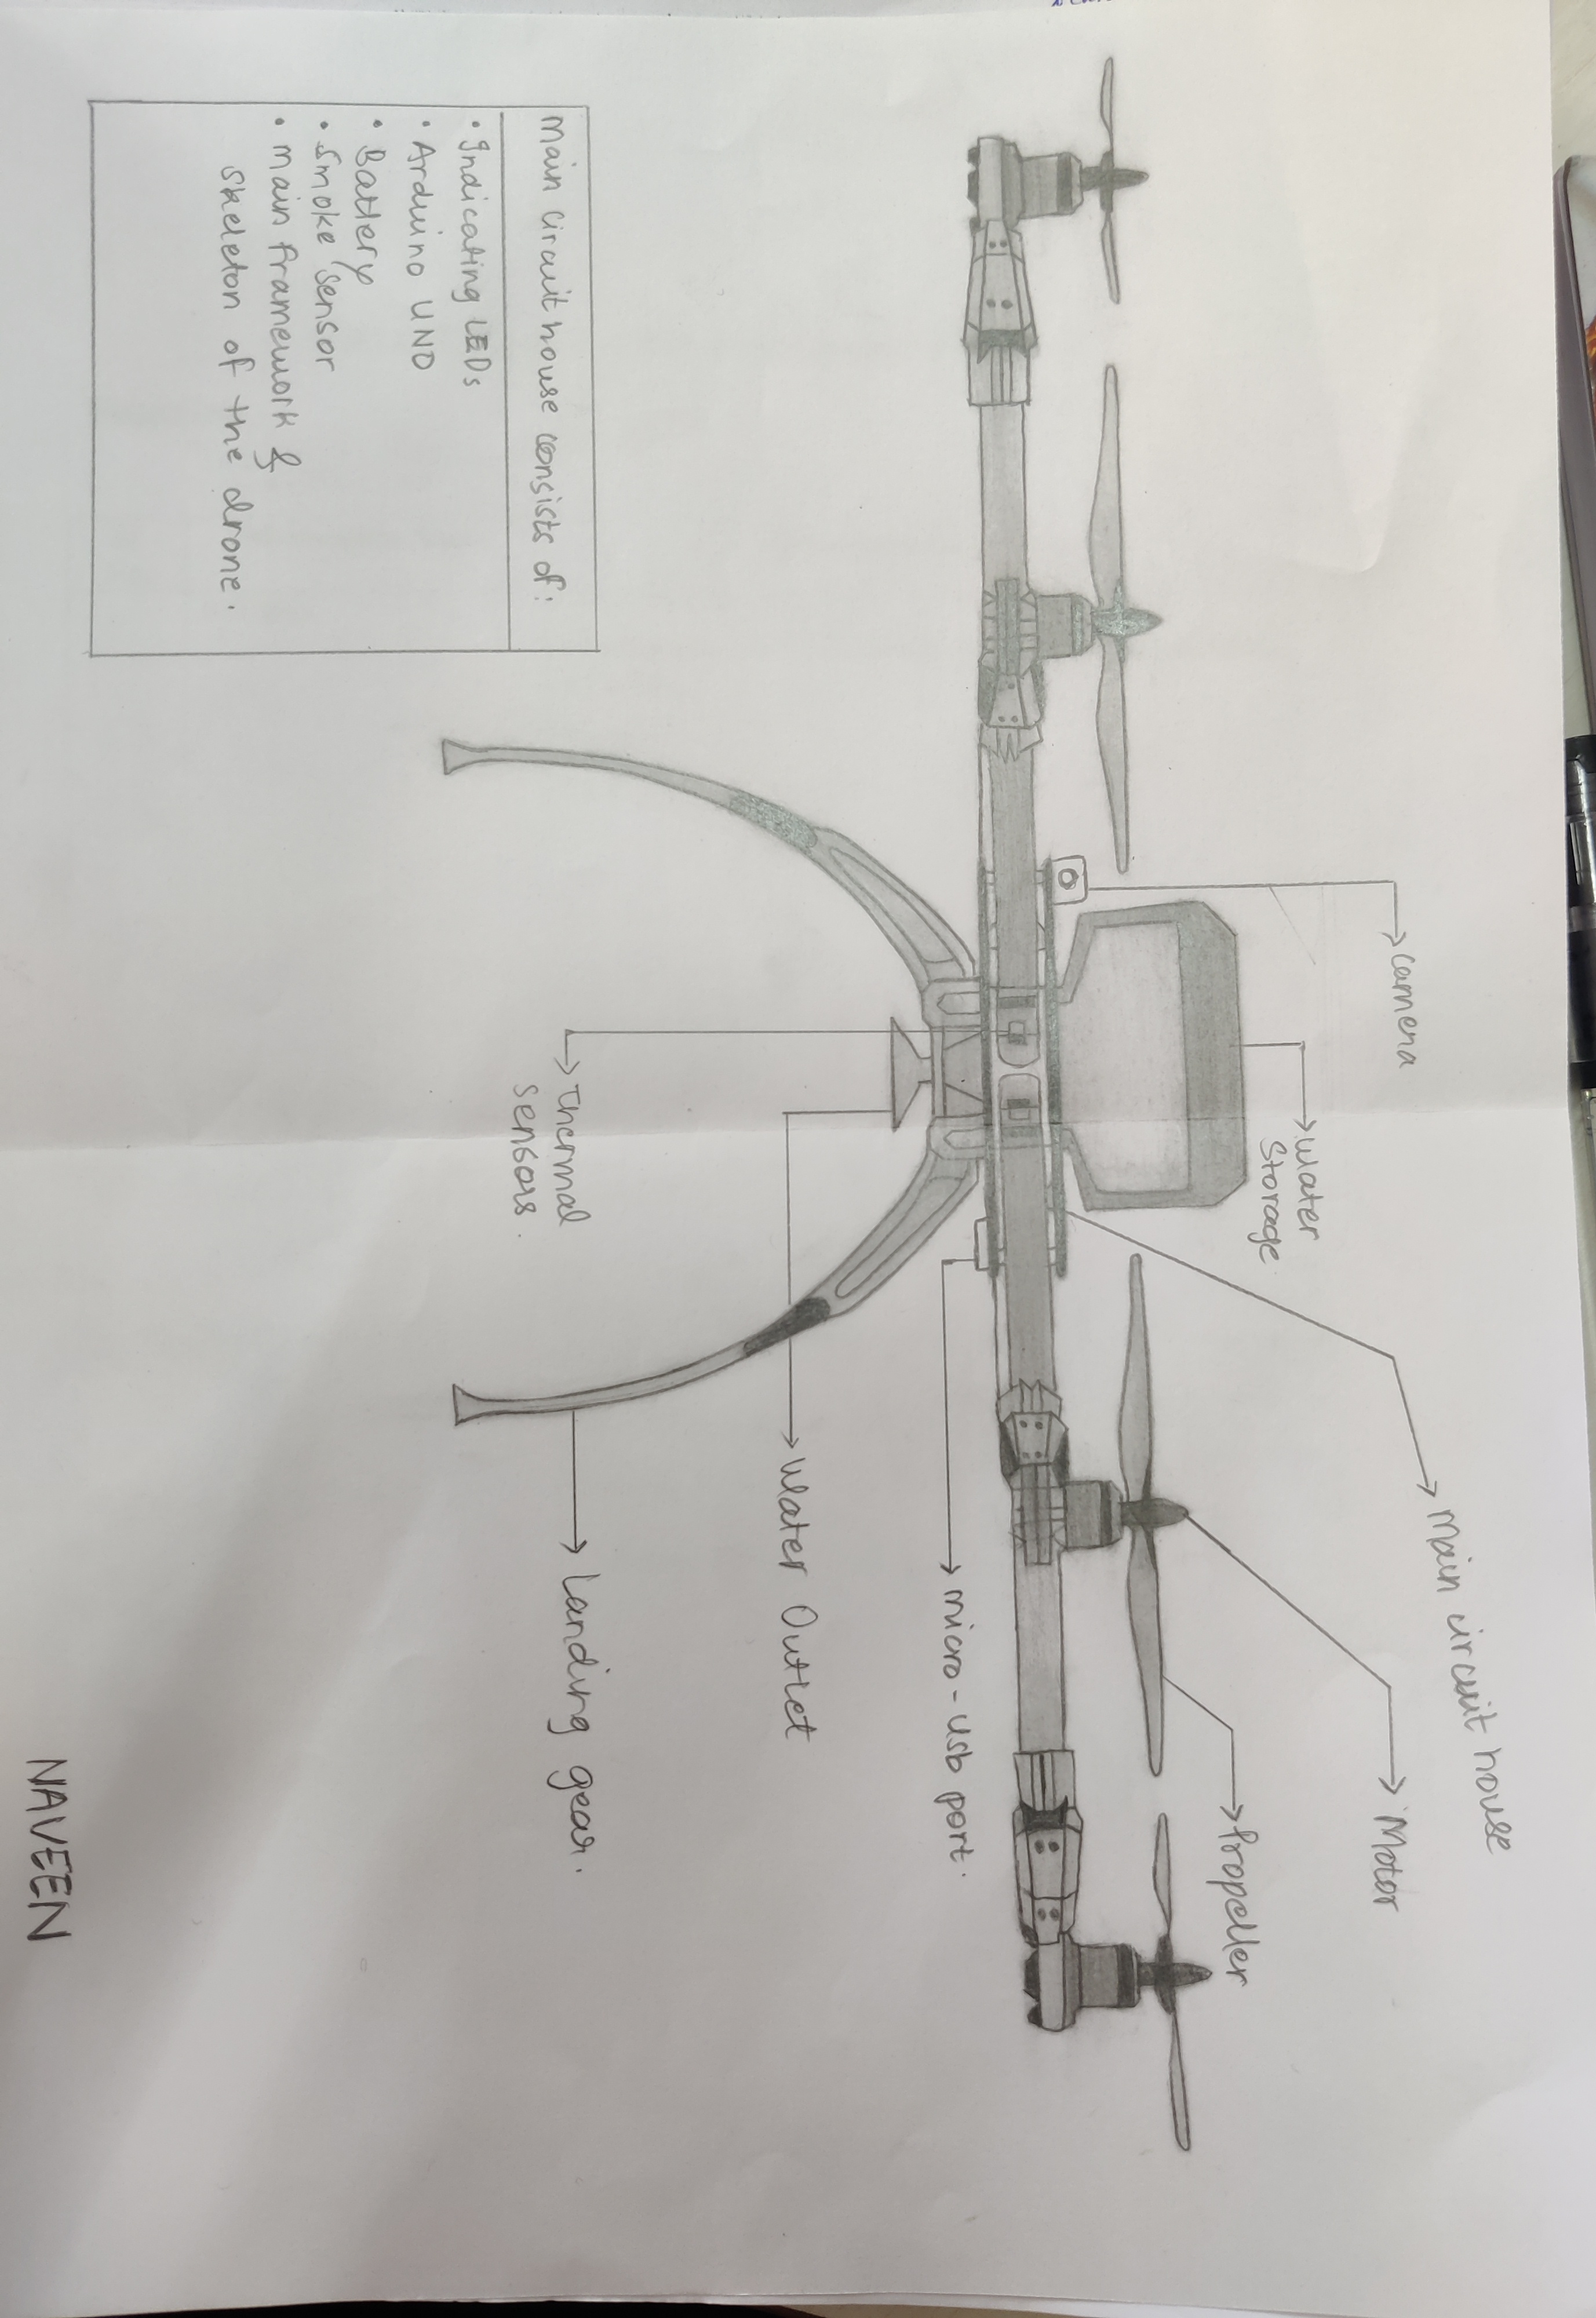 Main circuit house
camera
Motor
water
Storage
Propeller
micro-usb port.
Water Outlet
Landing gear.
Thermal
sensors.
Main circuit house consists of:
• Indicating LEDs
• Arduino UNO
• Battery
• Smoke sensor
• Main framework &
skeleton of the drone.
NAVEEN